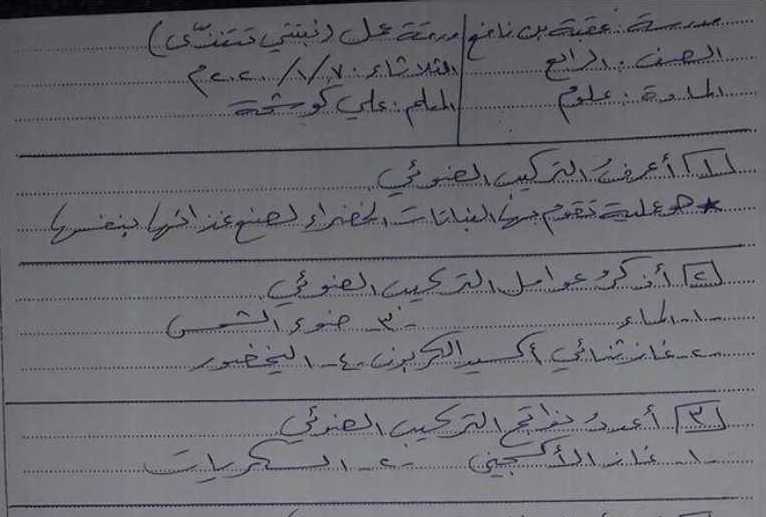 مدرسة: عقبة بن نافع ورقة عمل (نبتتي تتغذّى)
الصف: الرابع الثلاثاء: ٧ / ١ / ٢٠٢٠م
المادة: علوم المعلم: علي كوشة
١ أعرفُ التركيب الضوئي
* هو عملية تقوم بها النباتات الخضراء لصنع غذائها بنفسها
٢ أذكرُ عوامل التركيب الضوئي
١- الماء ٣- ضوء الشمس
٢- غاز ثنائي أكسيد الكربون ٤- اليخضور
٣ أعددُ نواتج التركيب الضوئي
١- غاز الأكسجين ٢- السكريات